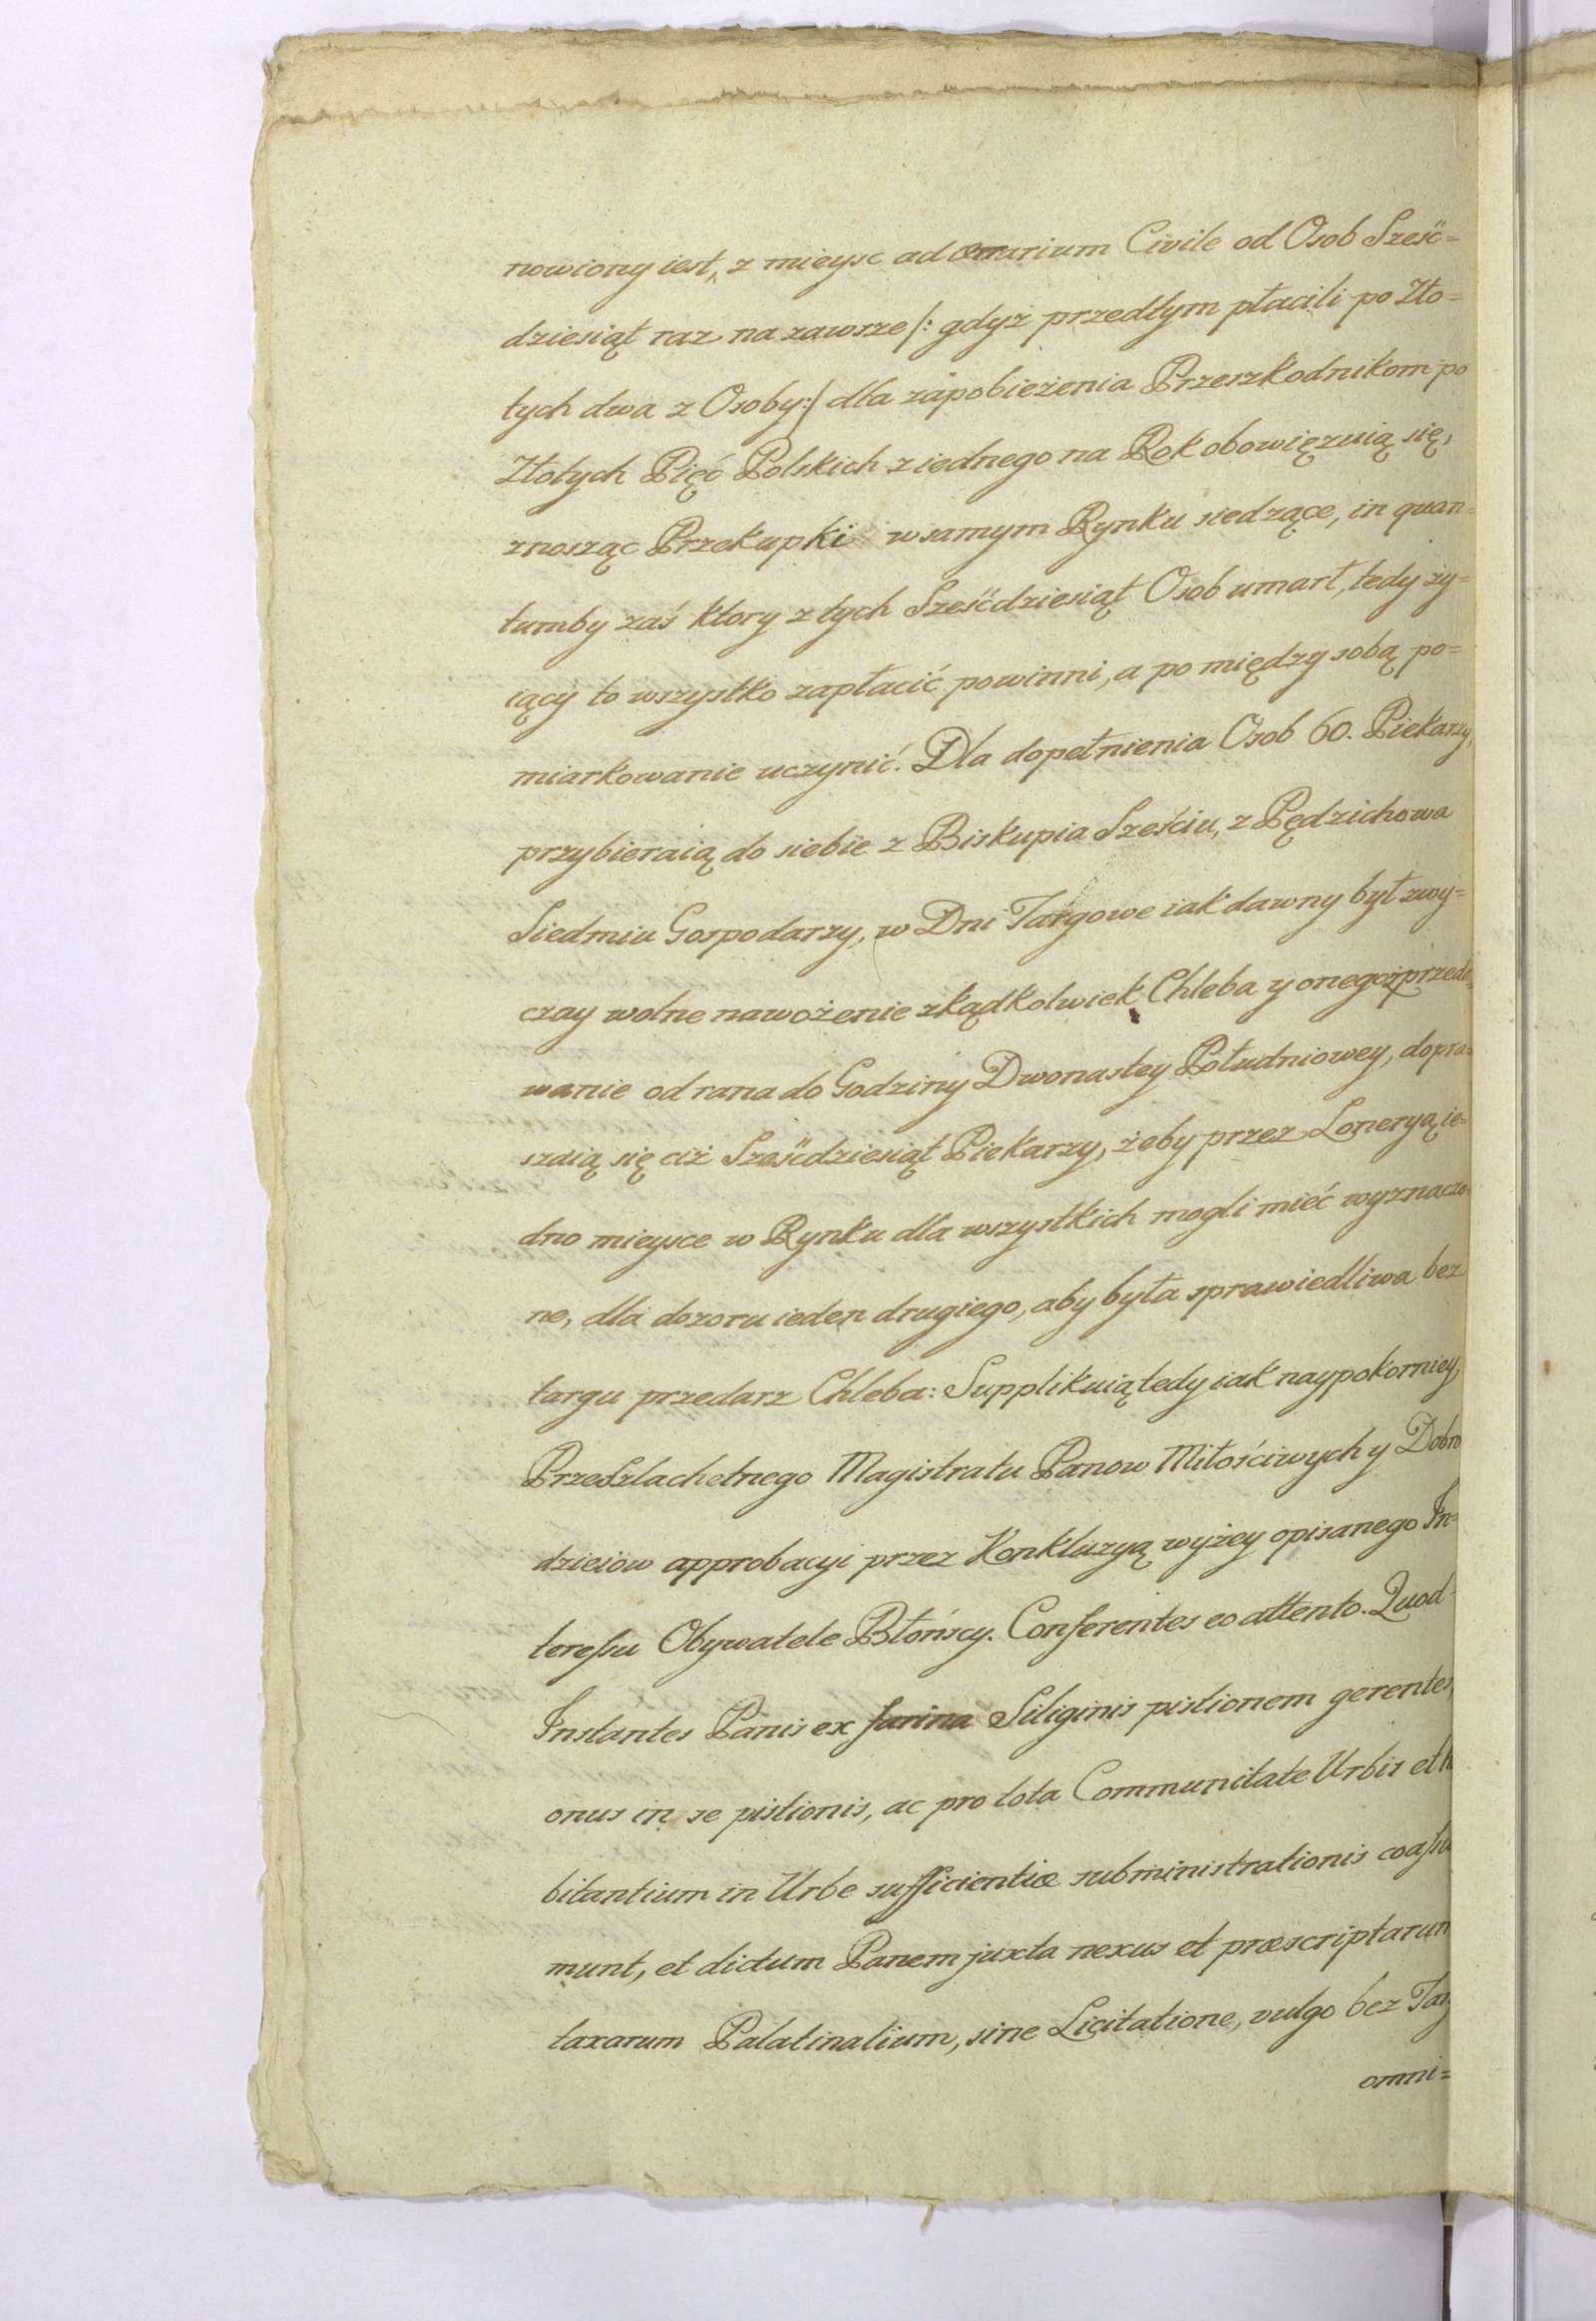 nowiony iest, z mieysc ad ærarium Civile od Osob Sześć=
dziesiąt raz na zawsze /: gdyż przedtym płacili po Zło=
tych dwa z Osoby :/ dla zapobieżenia Przeszkodnikom po
Złotych Pięć Polskich z iednego na Rok obowięzuią się,
znosząc Przekupki w samym Rynku siedzące, in quan=
tumby zaś ktory z tych Sześćdziesiąt Osob umarł, tedy ży=
iący to wszystko zapłacić powinni, a po między sobą po=
miarkowanie uczynić. Dla dopełnienia Osob 60. Piekarzy,
przybieraią do siebie z Biskupia Sześciu, z Pędzichowa
Siedmiu Gospodarzy, w Dni Targowe iak dawny był zwy=
czay wolne nawożenie zkądkolwiek Chleba y onegoż przeda=
wanie od rana do Godziny Dwonastey Południowey, dopra=
szaią się ciż Sześćdziesiąt Piekarzy, żeby przez Loneryą ie=
dno mieysce w Rynku dla wszystkich mogli mieć wyznaczo=
ne, dla dozoru ieden drugiego, aby była sprawiedliwa bez
targu przedarz Chleba: Supplikuią tedy iak naypokorniey,
PrzeSzlachetnego Magistratu Panow Miłościwych y Dobro
dzieiow approbacyi przez Konkluzyą wyżey opisanego In=
teressu Obywatele Błońscy. Conferentes eo attento. Quod
Instantes Panis ex farina Siliginis pistionem gerentes,
onus in se pistionis, ac pro tota Communitate Urbis et ha
bitantium in Urbe sufficientiæ subministrationis coassu
munt, et dictum Panem juxta nexus et præscriptarum
taxarum Palatinalium, sine Licitatione, vulgo bez Targ
omni=